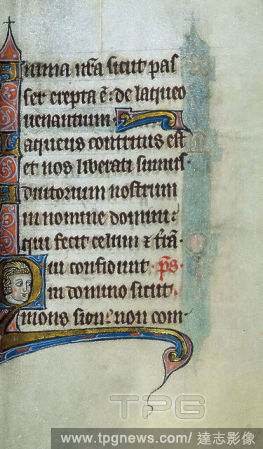 Anima nr̄a sicut pas
ser erepta ē: de laqueo
uenantium.
Laqueus contritus est
et nos liberati sumus
Adiutorium nostrum
in nomine domini:
qui fecit celum ⁊ t̄rā.
Qui confidunt p̄s.
in domino sicut
mons sion: non com-
TPG
www.tpgnews.com / 達志影像